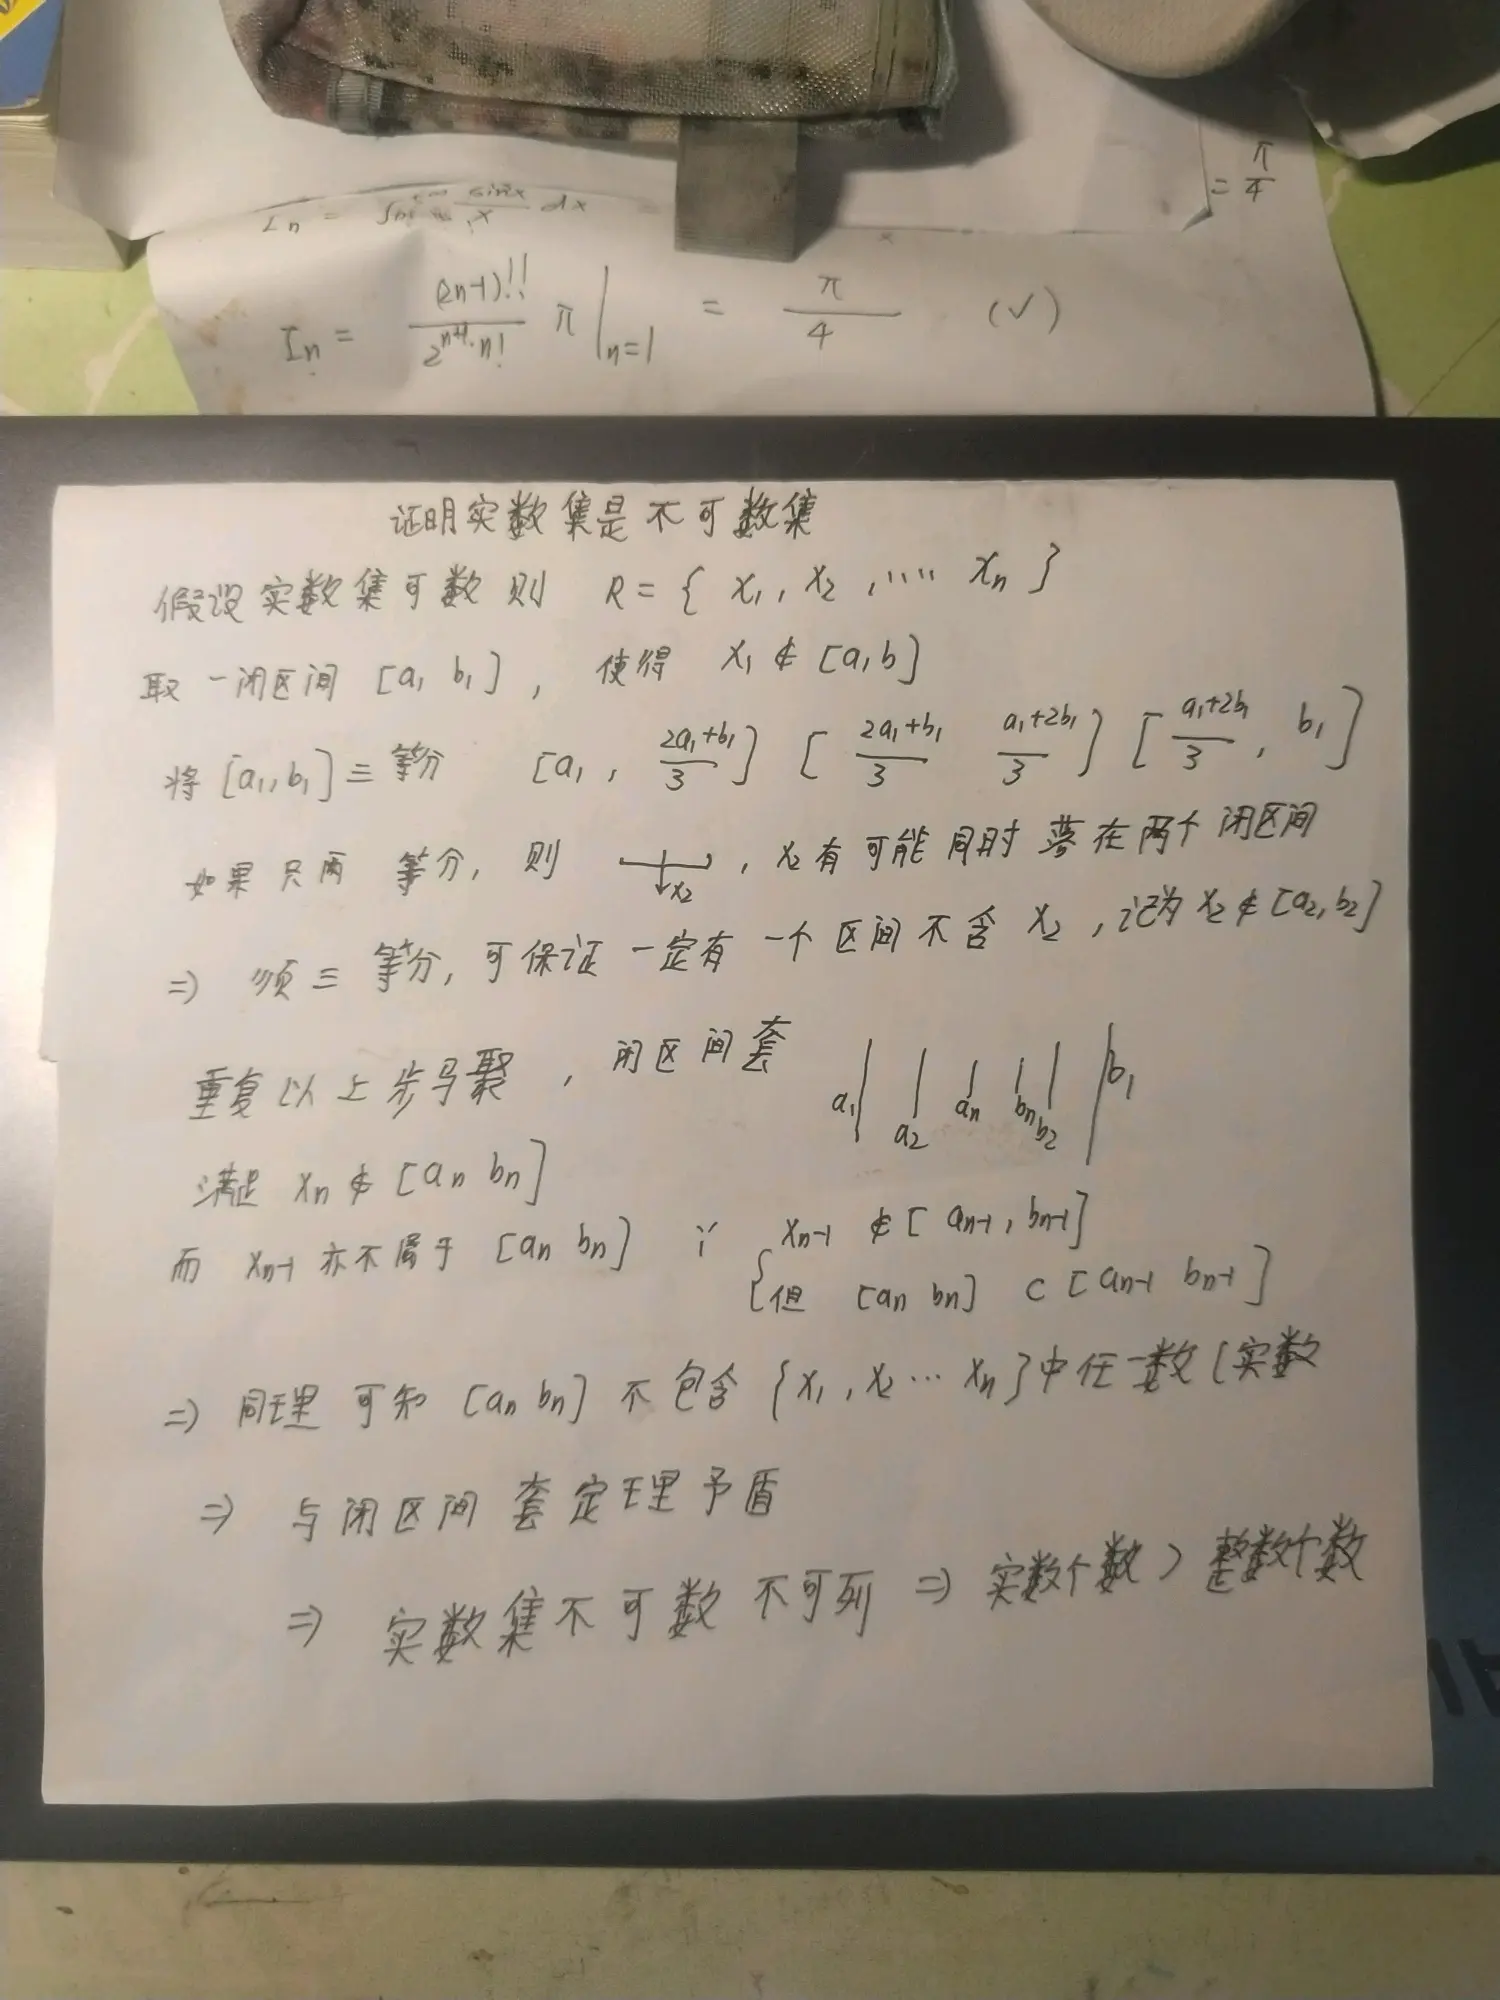 = π/4
I_n = (2n-1)!!/(2^{n+1}·n!) π |_{n=1} = π/4 (√)
证明实数集是不可数集
假设实数集可数则 R = { x₁, x₂, …… xₙ }
取一闭区间 [a₁ b₁], 使得 x₁ ∉ [a, b]
将 [a₁, b₁] 三等分 [a₁, (2a₁+b₁)/3] [(2a₁+b₁)/3 (a₁+2b₁)/3] [(a₁+2b₁)/3, b₁]
如果只两等分, 则 x₂ , x₂有可能同时落在两个闭区间
⇒ 须三等分, 可保证一定有一个区间不含 x₂, 记为 x₂ ∉ [a₂, b₂]
重复以上步骤, 闭区间套 a₁ a₂ aₙ bₙ b₂ b₁
满足 xₙ ∉ [aₙ bₙ]
而 xₙ₋₁ 亦不属于 [aₙ bₙ] ∵ { xₙ₋₁ ∉ [aₙ₋₁, bₙ₋₁]
但 [aₙ bₙ] ⊂ [aₙ₋₁ bₙ₋₁]
⇒ 同理可知 [aₙ bₙ] 不包含 {x₁, x₂ … xₙ} 中任一数 (实数
⇒ 与闭区间套定理矛盾
⇒ 实数集不可数 不可列 ⇒ 实数个数 > 整数个数